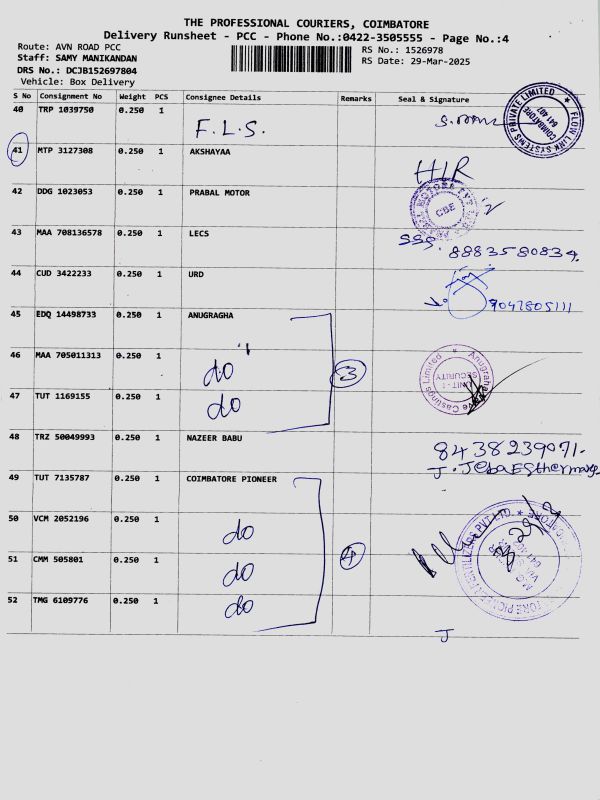 THE PROFESSIONAL COURIERS, COIMBATORE
Delivery Runsheet - PCC - Phone No.:0422-3505555 - Page No.:4
Route: AVN ROAD PCC
Staff: SAMY MANIKANDAN
DRS No.: DCJB152697804
Vehicle: Box Delivery
RS No.: 1526978
RS Date: 29-Mar-2025
S No Consignment No Weight PCS Consignee Details Remarks Seal & Signature
40 TRP 1039750 0.250 1 F.L.S.
FLOW LINK SYSTEMS PRIVATE LIMITED
COIMBATORE
641 407
41 MTP 3127308 0.250 1 AKSHAYAA
42 DDG 1023053 0.250 1 PRABAL MOTOR
CBE
43 MAA 708136578 0.250 1 LECS
8883580834.
44 CUD 3422233 0.250 1 URD
9047805111
45 EDQ 14498733 0.250 1 ANUGRAGHA
46 MAA 705011313 0.250 1 do "
3
47 TUT 1169155 0.250 1 do
Castings Limited
UNIT - I
SECURITY
48 TRZ 50049993 0.250 1 NAZEER BABU 8438239071.
49 TUT 7135787 0.250 1 COIMBATORE PIONEER
50 VCM 2052196 0.250 1 do
51 CMM 505801 0.250 1 do 4
52 TMG 6109776 0.250 1 do
J